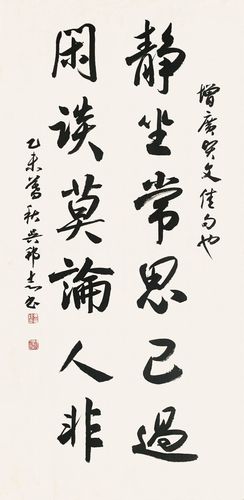 增廣贤文佳句也
靜坐常思己過
閑談莫論人非
乙未暮秋吴邦